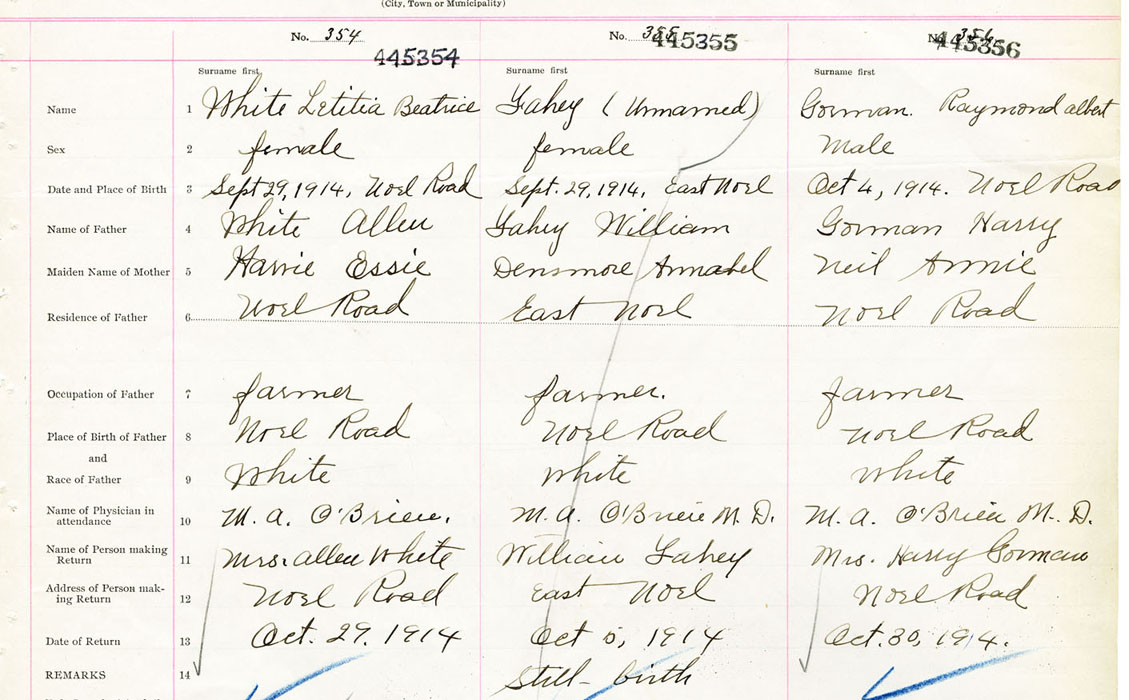 (City, Town or Municipality)
No. 354 No. 355 No. 356
445354 445355 445356
Surname first. Surname first Surname first
Name 1 White Letitia Beatrice Fahey (Unnamed) Gorman. Raymond albert
Sex 2 female female Male
Date and Place of Birth 3 Sept 29, 1914, Noel Road Sept. 29, 1914, East Noel Oct 4, 1914. Noel Road
Name of Father 4 White Allen Fahey William Gorman Harry
Maiden Name of Mother 5 Essie Densmore Annabel Neil Annie
Residence of Father 6 Noel Road East Noel Noel Road
Occupation of Father 7 farmer farmer. farmer
Place of Birth of Father 8 Noel Road Noel Road Noel Road
and
Race of Father 9 White White White
Name of Physician in
attendance 10 M. A. O'Brien. M. A. O'Brien M. D. M. A. O'Brien M. D.
Name of Person making
Return 11 Mrs. Allen White William Fahey Mrs. Harry Gorman
Address of Person mak-
ing Return 12 Noel Road East Noel Noel Road
Date of Return 13 Oct. 29. 1914 Oct 1914 Oct. 30, 1914.
REMARKS 14 Still-birth